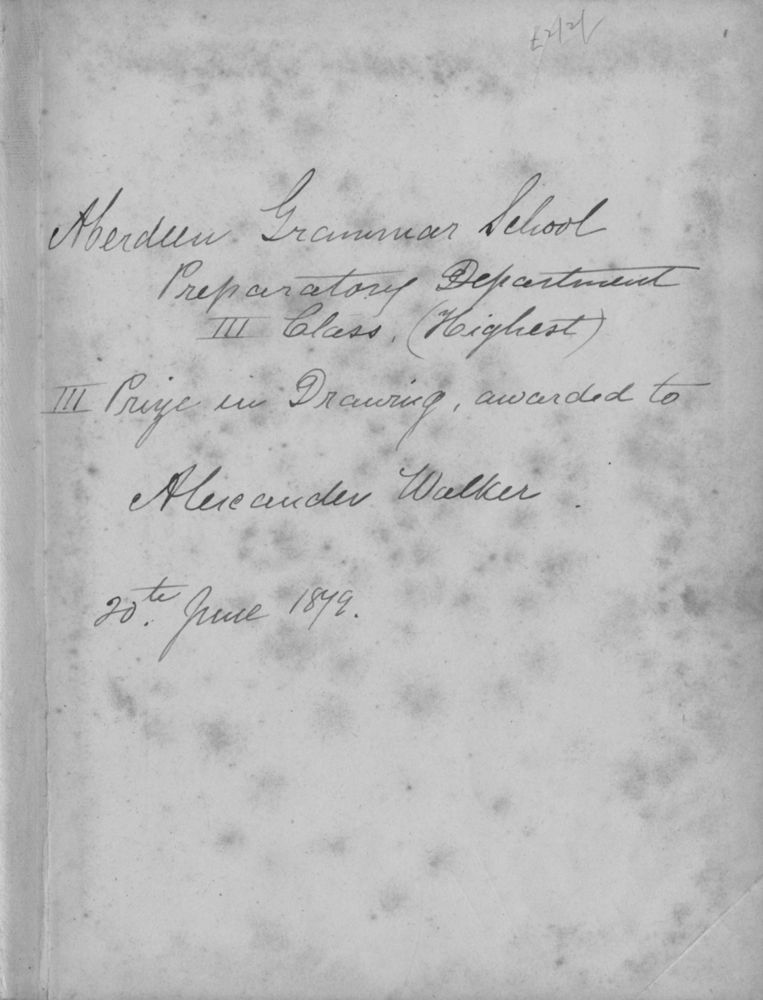 £2/2/
Aberdeen Grammar School
Preparatory Department
III Class, (Highest)
III Prize in Drawing, awarded to
Alexander Walker.
20th. June 1879.